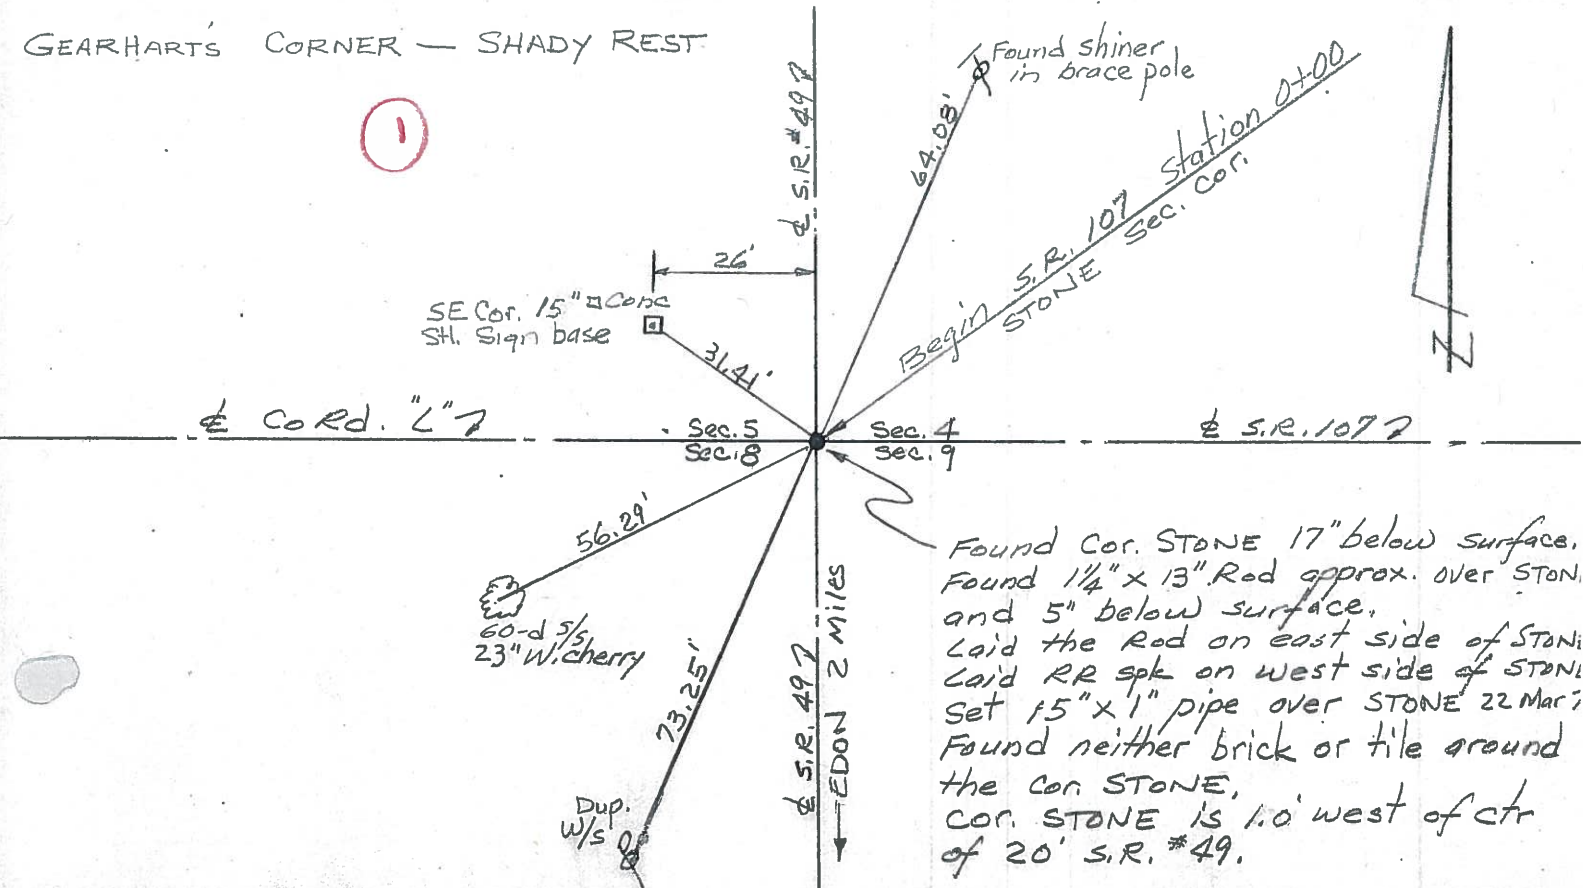 GEARHART'S CORNER — SHADY REST
1
℄ S.R. #49
Found shiner
in brace pole
64.08'
Begin S.R. 107 Station 0+00
STONE Sec. Cor.
26'
SE Cor. 15" □ Conc
Stl. Sign base
31.41'
N
℄ Co Rd. "L"
Sec. 5
Sec. 8
Sec. 4
Sec. 9
℄ S.R. 107
56.29'
60-d S/S
23" W. cherry
73.25'
Dup.
W/S
℄ S.R. 49
EDON 2 Miles
Found Cor. STONE 17" below surface.
Found 1¼" x 13" Rod approx. over STON
and 5" below surface.
Laid the Rod on east side of STONE
Laid RR spk on west side of STONE
Set 15" x 1" pipe over STONE 22 Mar 7
Found neither brick or tile around
the Cor. STONE.
Cor. STONE is 1.0' west of ctr
of 20' S.R. #49.